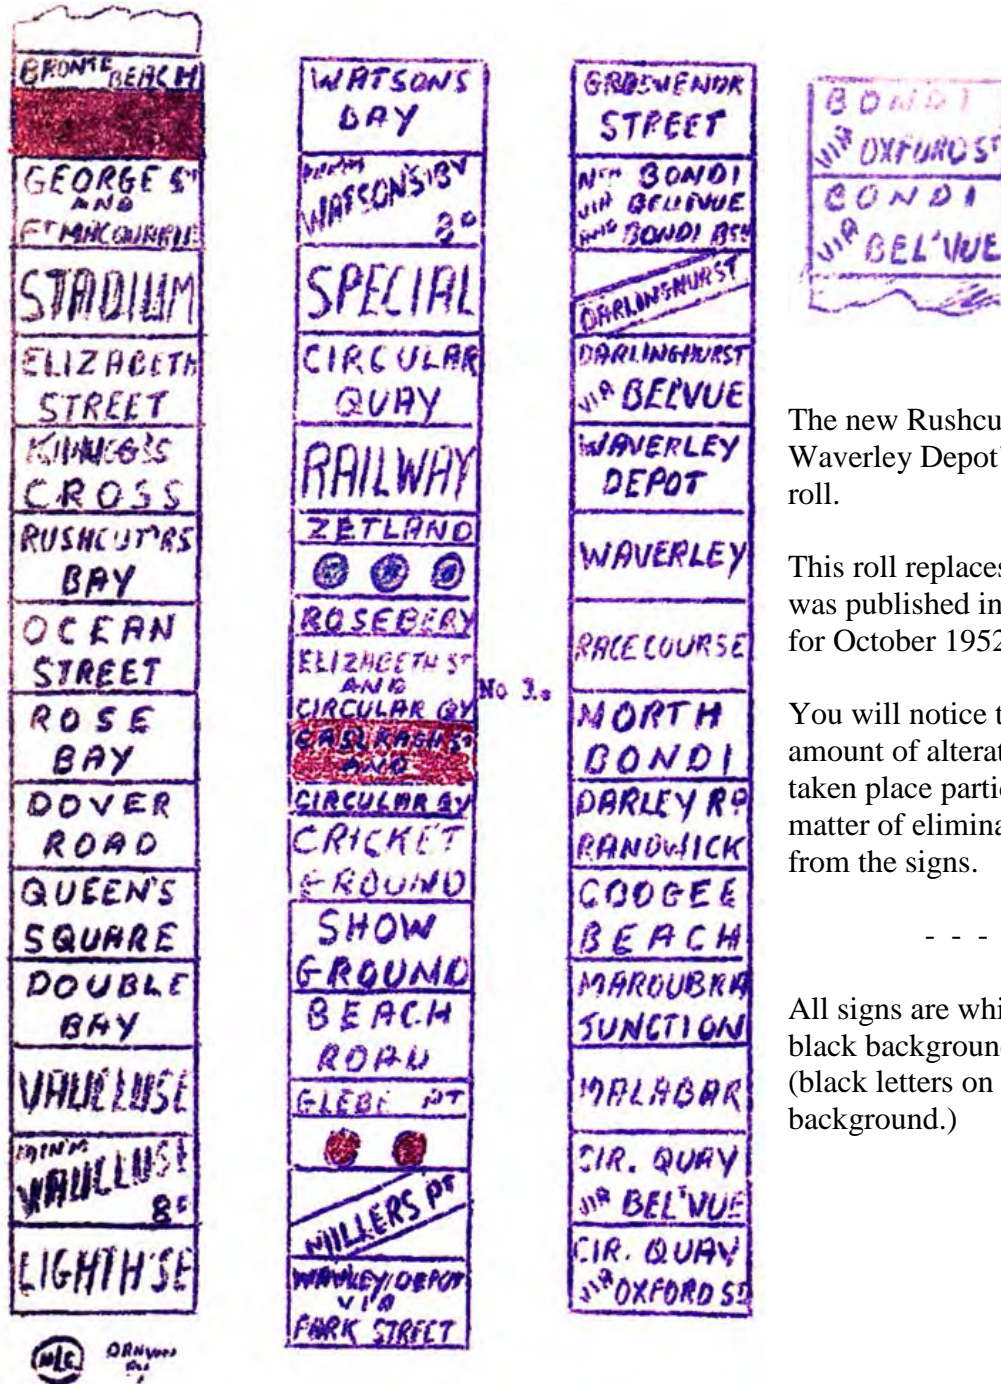 BRONTE BEACH
GEORGE ST
AND
FT MACQUARIE
STADIUM
ELIZABETH
STREET
CROSS
RUSHCUT'RS
BAY
OCEAN
STREET
ROSE
BAY
DOVER
ROAD
QUEEN'S
SQUARE
DOUBLE
BAY
VAUCLUSE
MIN'M
VAUCLUSE
8D
LIGHTH'SE
DRAWN
BY
WATSONS
BAY
WATSONS BY
8D
SPECIAL
CIRCULAR
QUAY
RAILWAY
ZETLAND
ROSEBERY
ELIZABETH ST
AND
CIRCULAR QY
No 3.
CASTLREAGH ST
AND
CIRCULAR QY
CRICKET
GROUND
SHOW
GROUND
BEACH
ROAD
GLEBE PT
MILLERS PT
WAV'LEY/DEPOT
VIA
PARK STREET
GROSVENOR
STREET
NTH BONDI
VIA BELLEVUE
AND BONDI BCH
DARLINGHURST
DARLINGHURST
VIA BEL'VUE
WAVERLEY
DEPOT
WAVERLEY
RACECOURSE
NORTH
BONDI
DARLEY RD
RANDWICK
COOGEE
BEACH
MAROUBRA
JUNCTION
MALABAR
CIR. QUAY
VIA BEL'VUE
CIR. QUAY
VIA OXFORD ST
BONDI
VIA OXFORD ST
BONDI
VIA BEL'VUE
The new Rushcu
Waverley Depot'
roll.
This roll replaces
was published in
for October 1952
You will notice t
amount of alterat
taken place partic
matter of elimina
from the signs.
- - -
All signs are whi
black background
(black letters on
background.)